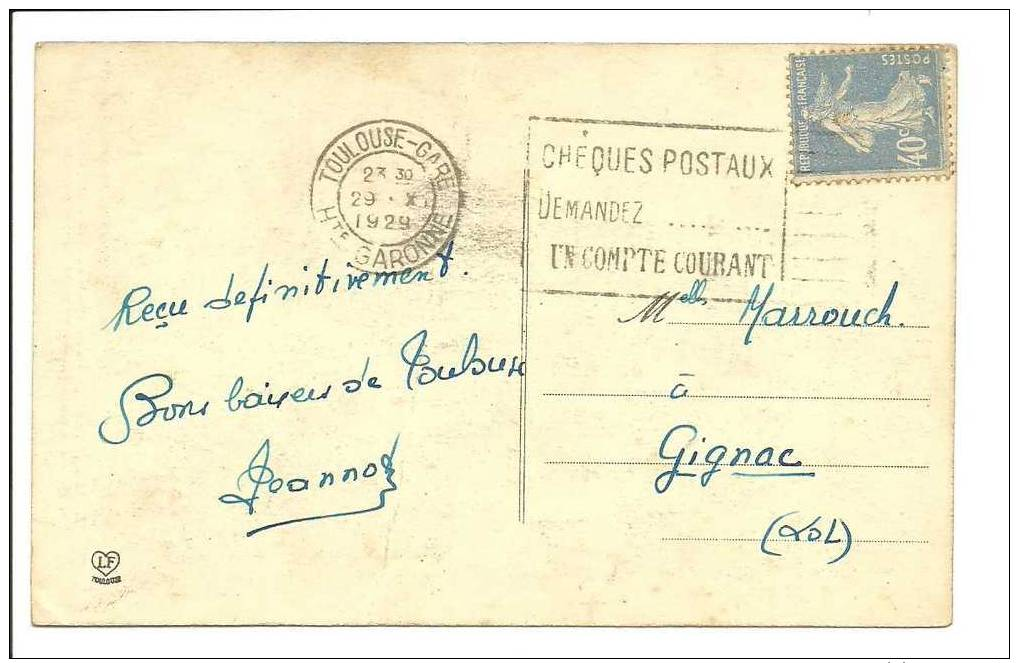 RÉPUBLIQUE FRANÇAISE
POSTES
40c
TOULOUSE-GARE
23 30
29 · XI
1929
HTE GARONNE
CHÈQUES POSTAUX
DEMANDEZ ...........
UN COMPTE COURANT
Reçu definitivement.
Bons baisers de Toulouse
Melles Marrouch.
à
Gignac
(Lot)
LF
TOULOUSE